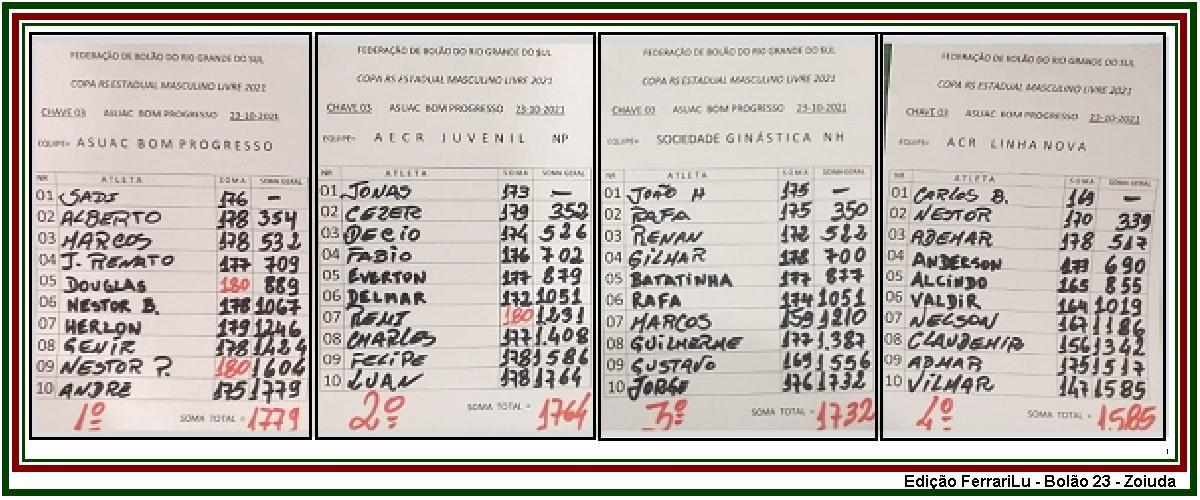 FEDERAÇÃO DE BOLÃO DO RIO GRANDE DO SUL
COPA RS ESTADUAL MASCULINO LIVRE 2021
CHAVE 03 ASUAC BOM PROGRESSO 23-10-2021
EQUIPE= ASUAC BOM PROGRESSO
NR ATLETA SOMA SOMA GERAL
01 SADI 176 —
02 ALBERTO 178 354
03 MARCOS 178 532
04 J. RENATO 177 709
05 DOUGLAS 180 889
06 NESTOR B. 178 1067
07 HERLON 179 1246
08 GENIR 178 1424
09 NESTOR P. 180 1604
10 ANDRE 175 1779
1º SOMA TOTAL = 1779
FEDERAÇÃO DE BOLÃO DO RIO GRANDE DO SUL
COPA RS ESTADUAL MASCULINO LIVRE 2021
CHAVE 03 ASUAC BOM PROGRESSO 23-10-2021
EQUIPE= AECR JUVENIL NP
NR ATLETA SOMA SOMA GERAL
01 JONAS 173 —
02 CEZER 179 352
03 DECIO 174 526
04 FABIO 176 702
05 EVERTON 177 879
06 DELMAR 172 1051
07 REMI 180 1231
08 CHARLES 177 1.408
09 FELIPE 178 1586
10 LUAN 178 1764
2º SOMA TOTAL = 1764
FEDERAÇÃO DE BOLÃO DO RIO GRANDE DO SUL
COPA RS ESTADUAL MASCULINO LIVRE 2021
CHAVE 03 ASUAC BOM PROGRESSO 23-10-2021
EQUIPE= SOCIEDADE GINÁSTICA NH
NR ATLETA SOMA SOMA GERAL
01 JOÃO H 175 —
02 RAFA 175 350
03 RENAN 172 522
04 GILMAR 178 700
05 BATATINHA 177 877
06 RAFA 174 1051
07 MARCOS 159 1210
08 GUILHERME 177 1.387
09 GUSTAVO 169 1556
10 JORGE 176 1732
3º SOMA TOTAL = 1732
FEDERAÇÃO DE BOLÃO DO RIO GRANDE DO SUL
COPA RS ESTADUAL MASCULINO LIVRE 2021
CHAVE 03 ASUAC BOM PROGRESSO 23-10-2021
EQUIPE= ACR LINHA NOVA
NR ATLETA SOMA SOMA GERAL
01 CARLOS B. 169 —
02 NESTOR 170 339
03 ADEMAR 178 517
04 ANDERSON 173 690
05 ALCINDO 165 855
06 VALDIR 164 1019
07 NELSON 167 1186
08 CLAUDEMIR 156 1342
09 ADMAR 175 1517
10 VILMAR 147 1585
4º SOMA TOTAL = 1585
Edição FerrariLu - Bolão 23 - Zoiuda